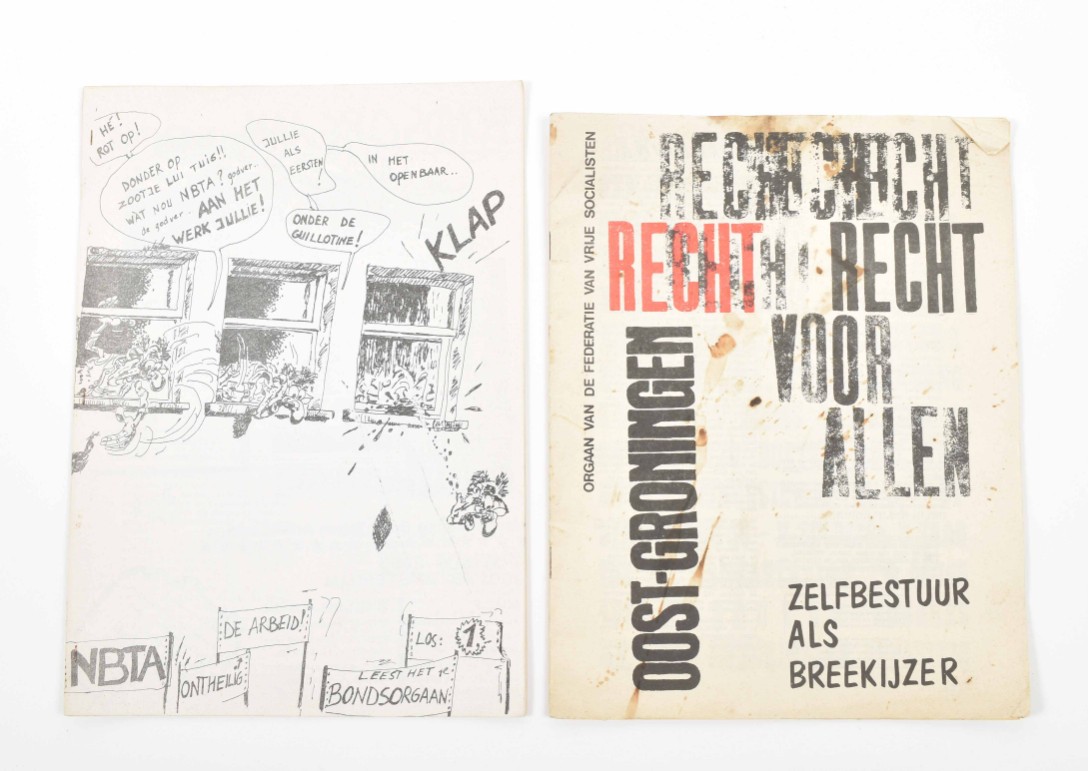 HÉ!
ROT OP!
DONDER OP
ZOOTJE LUI TUIG!!
WAT NOU NBTA? godver..
de godver.. AAN HET
WERK JULLIE!
JULLIE
ALS
EERSTEN!
IN HET
OPENBAAR..
ONDER DE
GUILLOTINE!
KLAP
NBTA
ONTHEILIG
DE ARBEID!
LEEST HET
BONDSORGAAN
LOS: 1,
ORGAAN VAN DE FEDERATIE VAN VRIJE SOCIALISTEN
RECHT
RECHT RECHT
VOOR
ALLEN
OOST-GRONINGEN
ZELFBESTUUR
ALS
BREEKIJZER